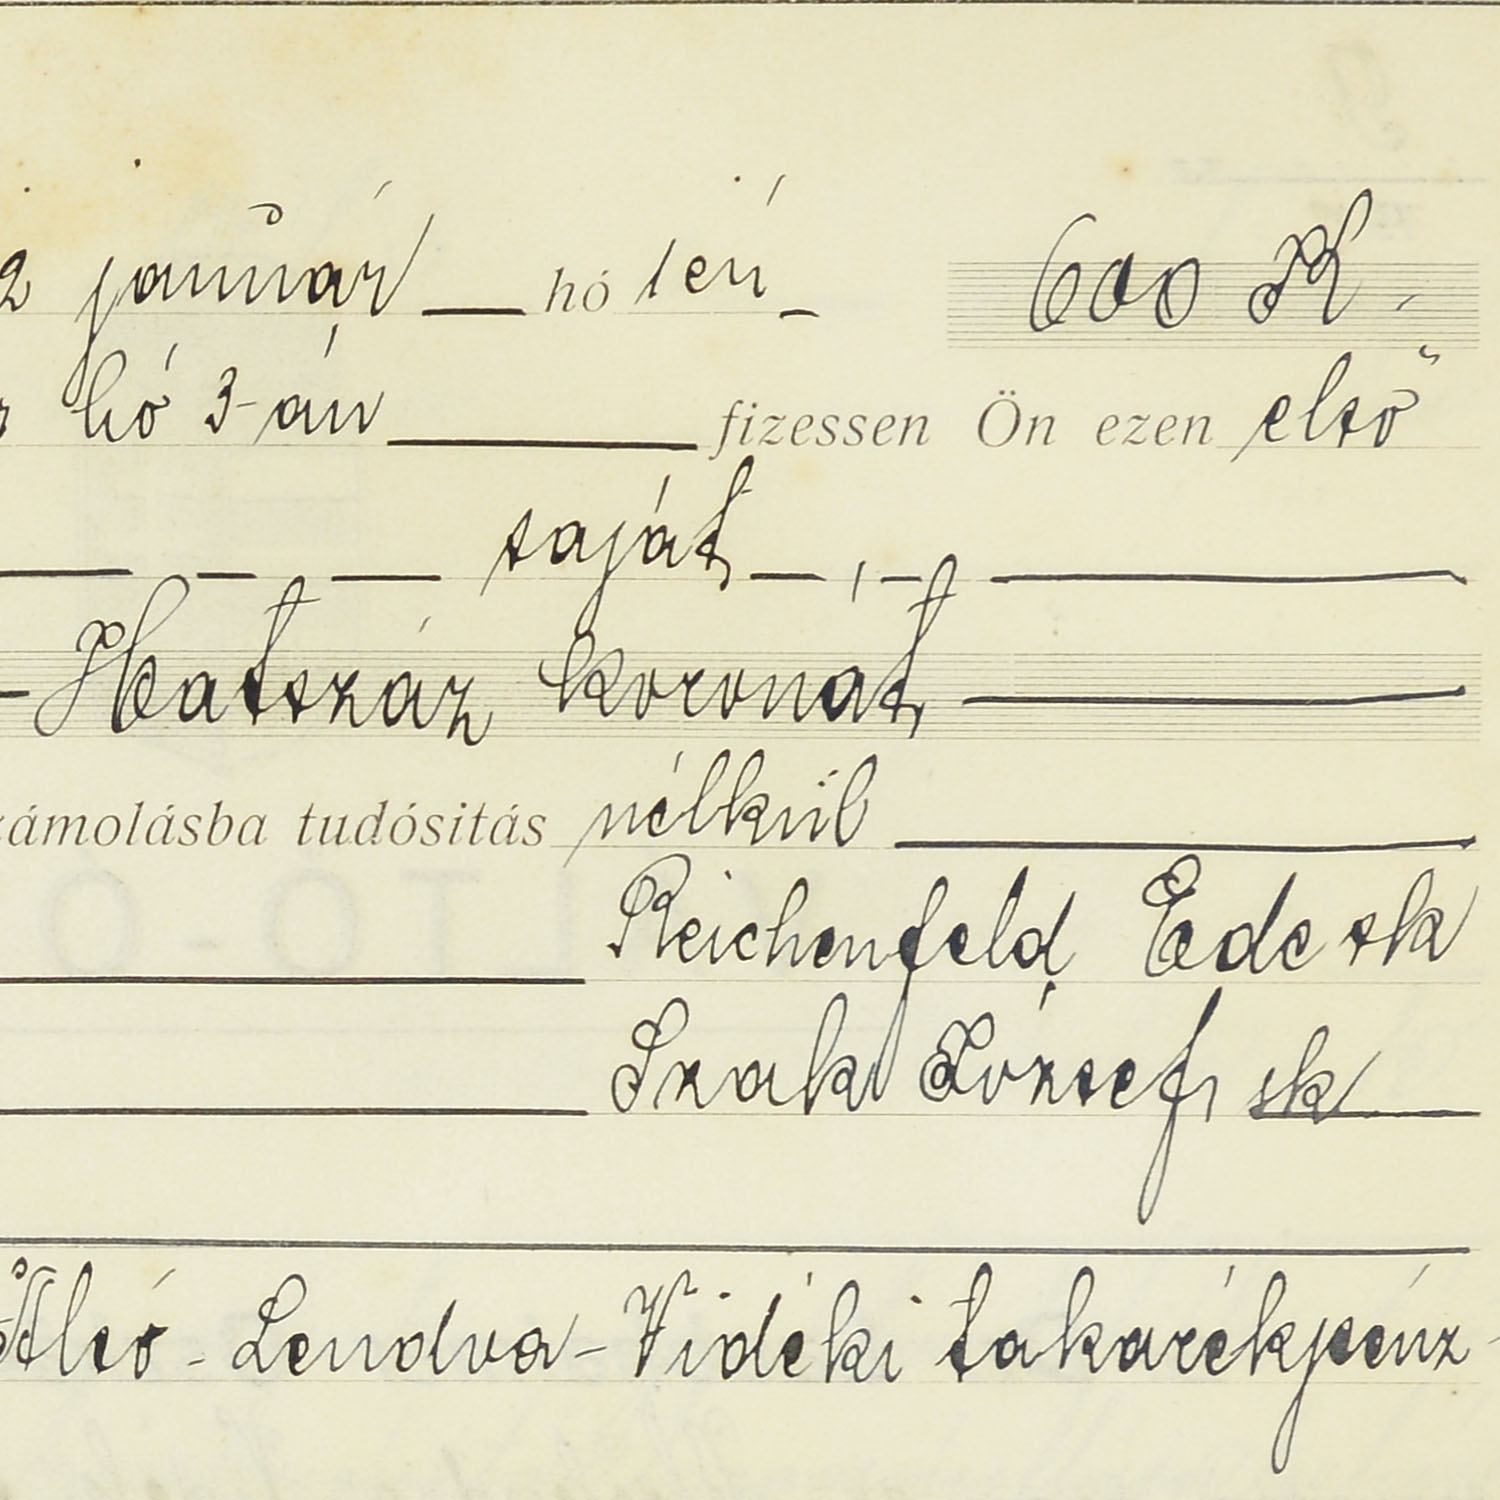 2 január hó 1én 600 K
hó 3-án fizessen Ön ezen első
saját
Hatszáz koronát
zámolásba tudósitás nélkül
Reichenfeld Ede sk
Szak József sk
Alsó-Lendva-Vidéki takarékpénz-